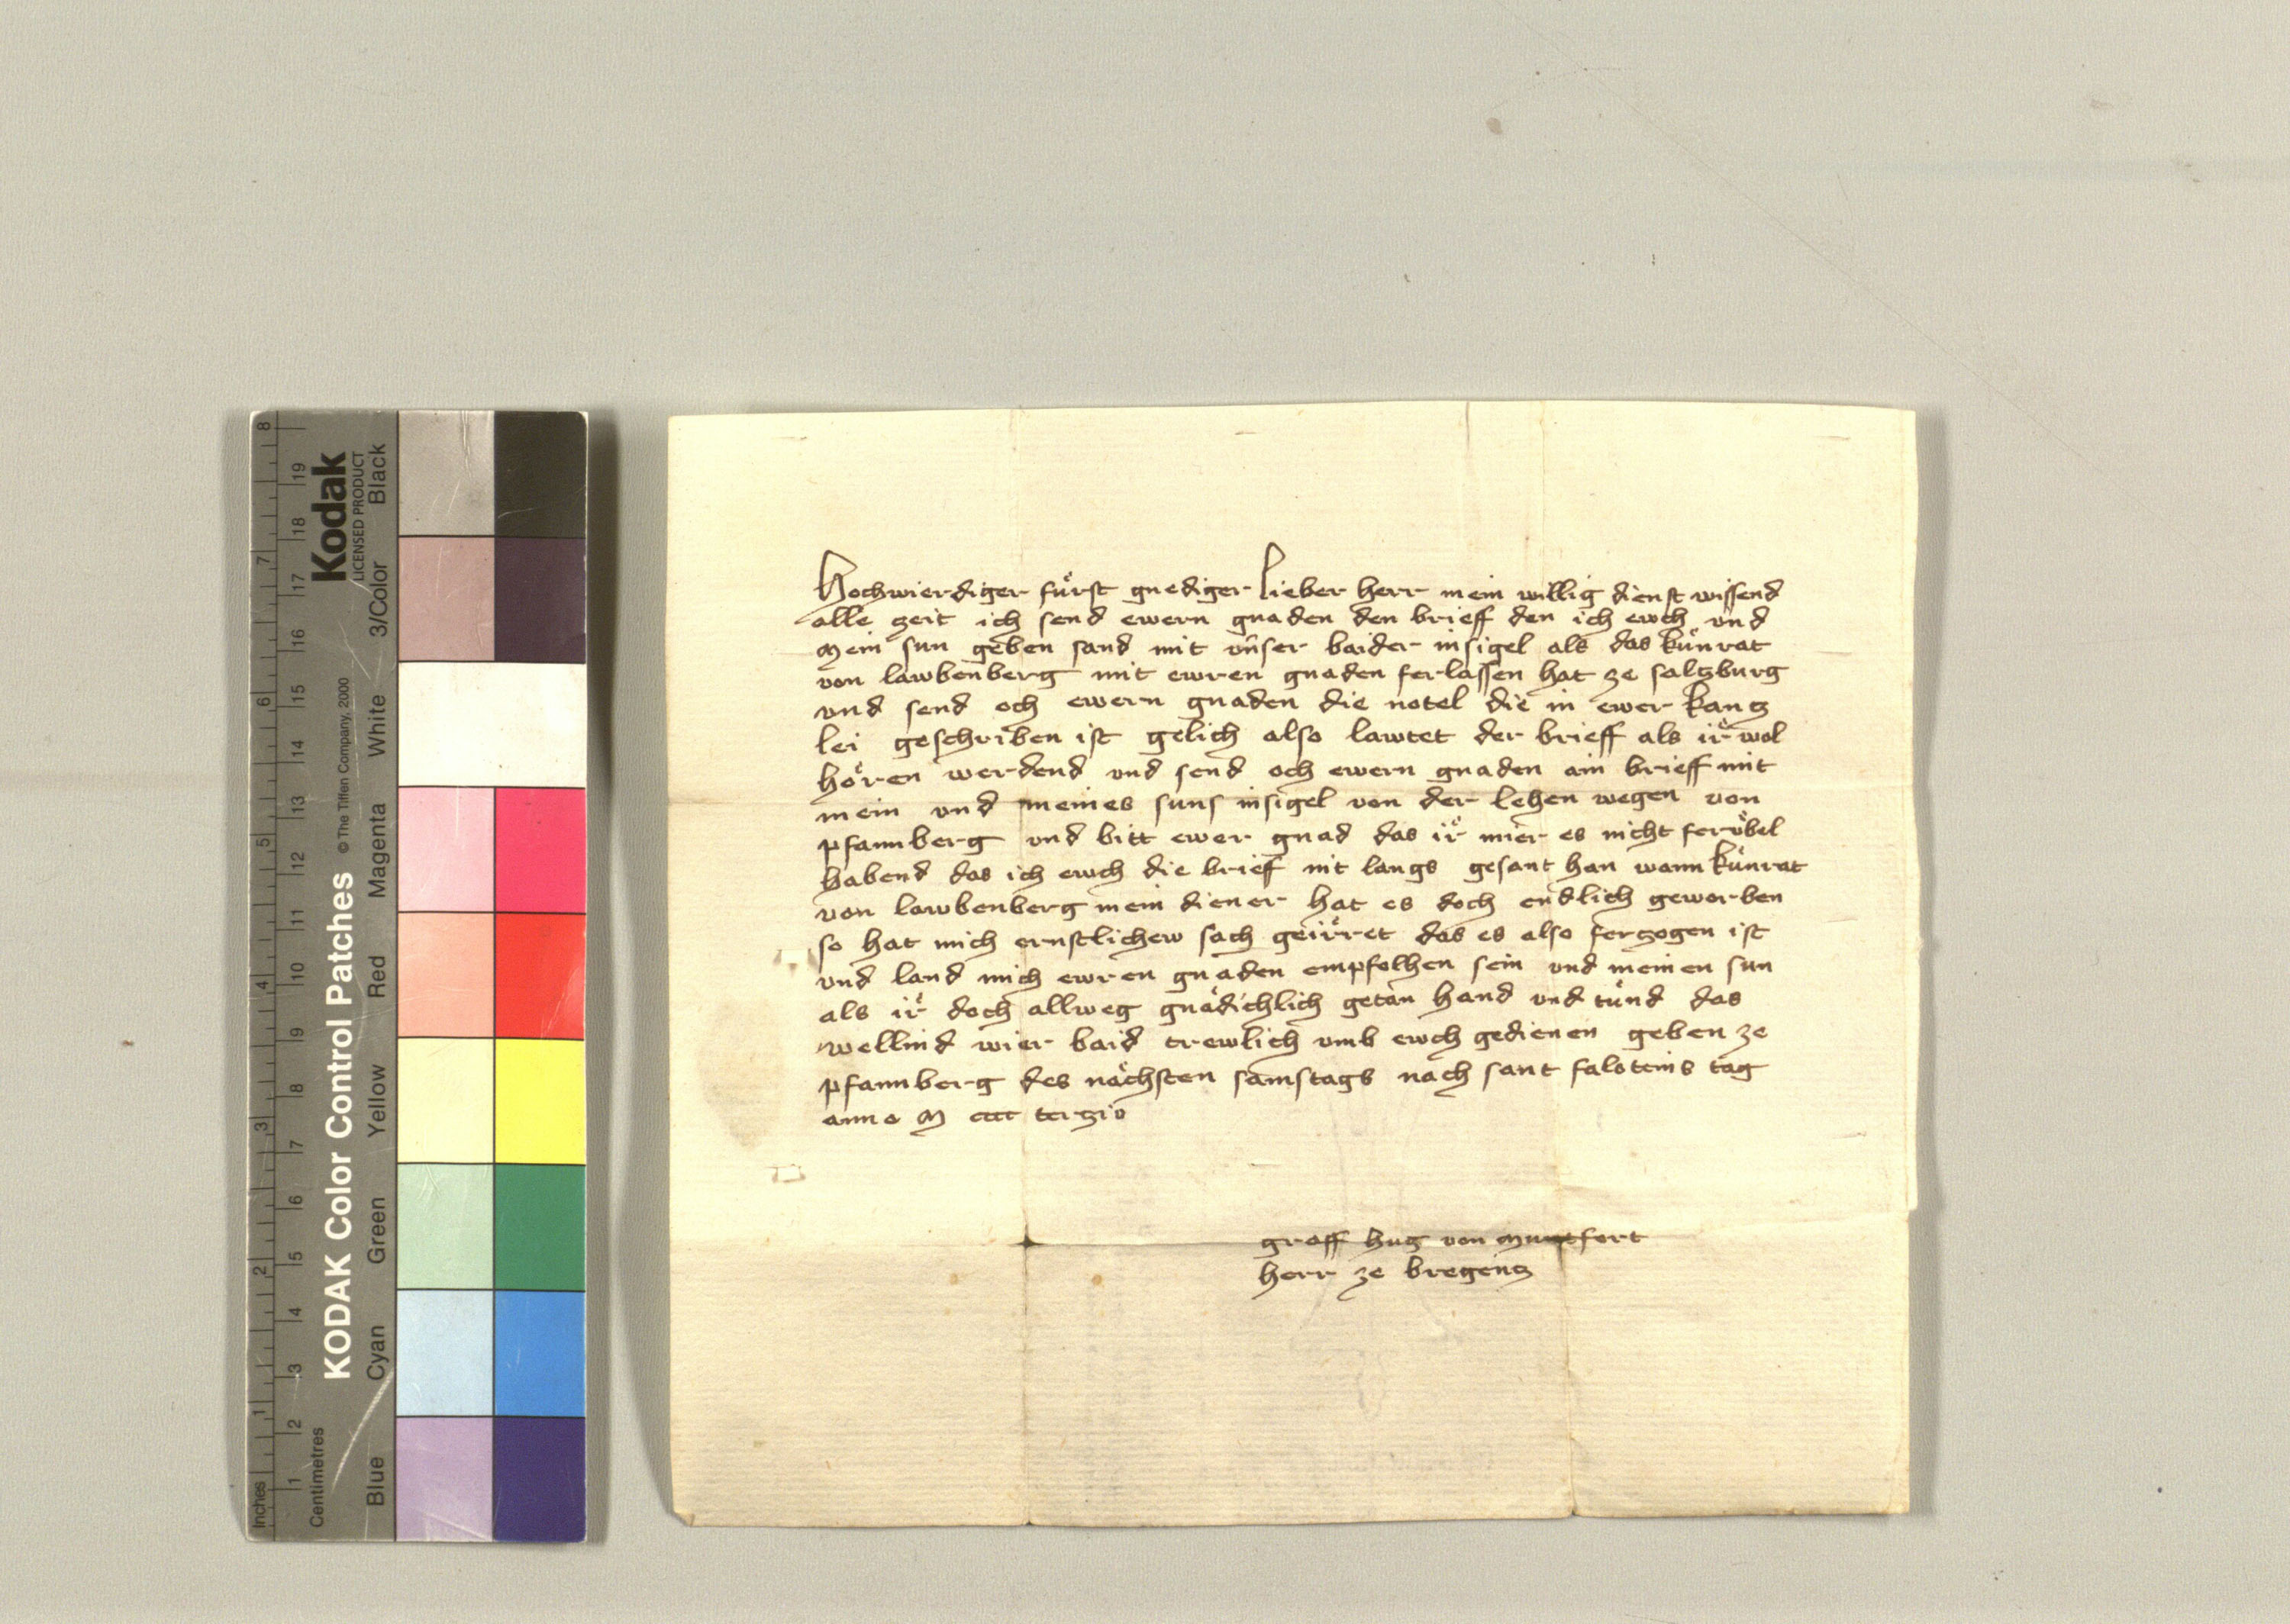 Hochwierdiger fuͤrst gnediger lieber herr mein willig dienst wissend
alle zeit ich send ewern gnaden den brieff den ich ewch vnd
mein sun geben sand mit vnser baider insigel als das kuͤnrat
von lawbenberg mit ewren gnaden ferlassen hat ze saltzburg
vnd send och ewern gnaden die notel die in ewer kantz
lei geschriben ist gelich also lawtet der brieff als ir wol
hoͤren werdend vnd send och ewern gnaden ain brieff mit
mein vnd meines suns insigel von der lehen wegen von
pfannberg vnd bitt ewer gnad das ir mier es nicht fervͤbel
habend das ich ewch die brieff nit langs gesant han wann kuͤnrat
von lawbenberg mein diener hat es doch endlich geworben
so hat mich ernstlichew sach geirret das es also ferzogen ist
vnd land mich ewren gnaden empfolhen sein vnd meinen sun
als ir doch allweg gnaͤdichlich getan hand vnd tuͤnd das
wellind wier baid trewlich vmb ewch gedienen geben ze
pfannberg des naͤchsten samstags nach sant falsteins tag
anno M cccc terzio
graff hug von muntfort
herr ze bregentz
KODAK Color Control Patches
© The Tiffen Company, 2000
Kodak
LICENSED PRODUCT
Inches 1 2 3 4 5 6 7 8
Centimetres 1 2 3 4 5 6 7 8 9 10 11 12 13 14 15 16 17 18 19
Blue Cyan Green Yellow Red Magenta White 3/Color Black